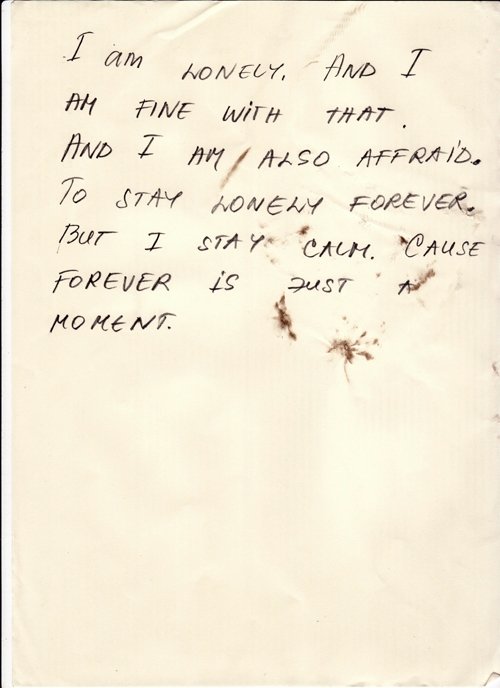 I am LONELY. AND I
AM FINE WITH THAT.
AND I AM ALSO AFFRAID.
TO STAY LONELY FOREVER.
BUT I STAY CALM. CAUSE
FOREVER IS JUST A
MOMENT.